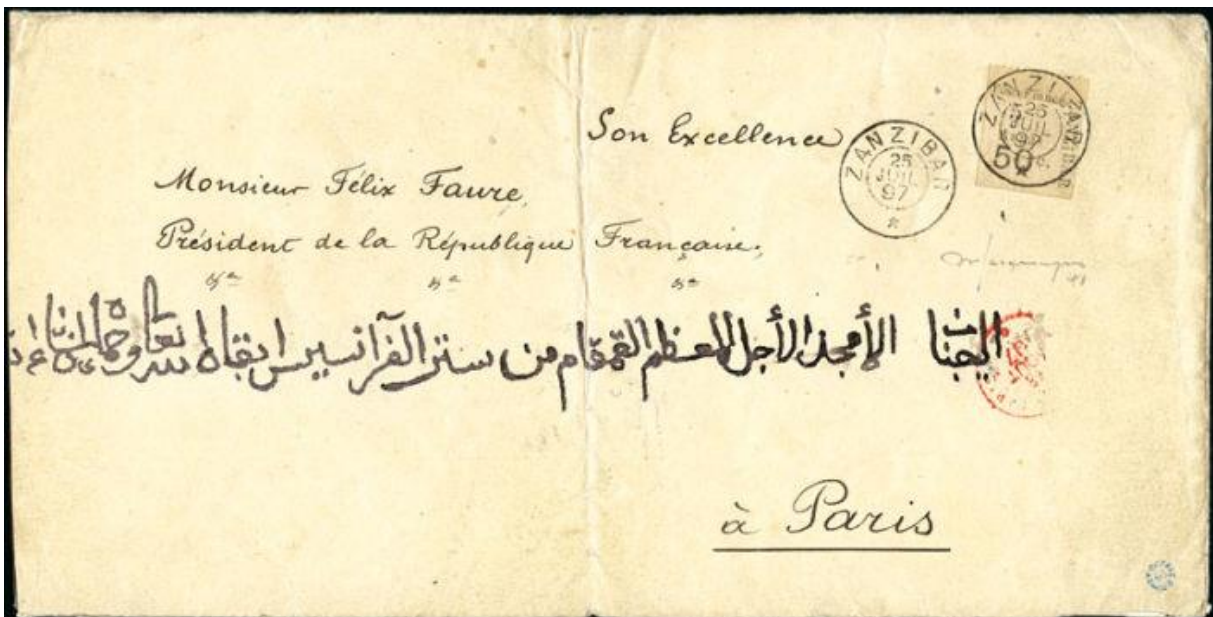 Son Excellence
Monsieur Félix Faure,
Président de la République Française,
ZANZIBAR
25
JUIL
97
*
ZANZI
25
JUIL
97
50
الجناب الأمجد الأجل المعظم القمقام من سنتر الفرانسيس ابقاه الله تعالى
à Paris